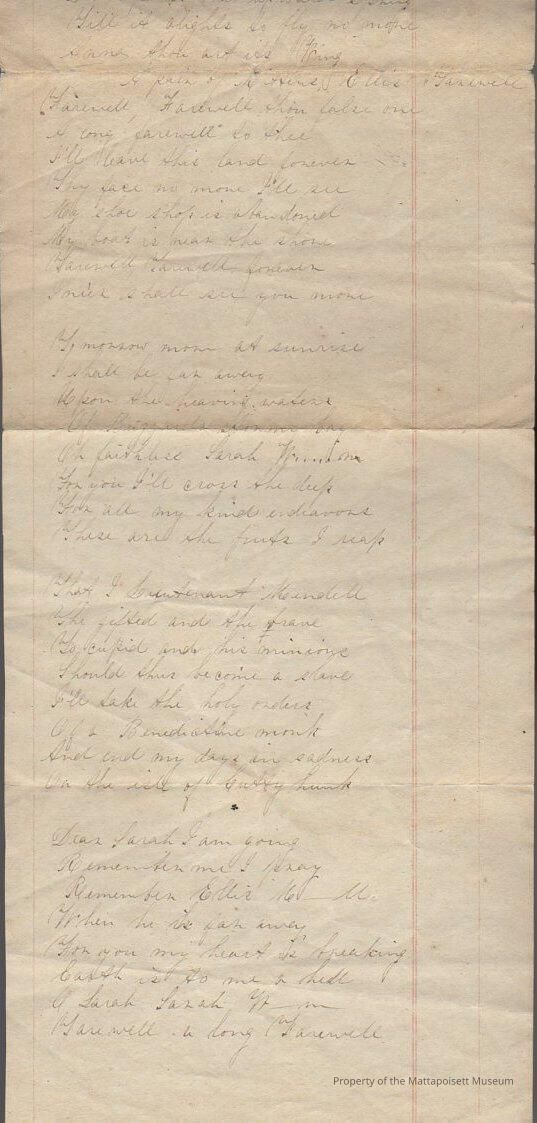 Till it alights to fly no more
thou art its King
A pair of Ellis Farewell
Farewell, Farewell thou false one
A long farewell to thee
I'll leave this land forever
Thy face no more I'll see
My shoe shop is abandoned
My boat is near the shore
Farewell Farewell forever
I neer shall see you more
To morrow morn at sunrise
I shall be far away
Upon the heaving waters
Of Buzzards stormy bay
Oh faithless Sarah W.....m
For you I'll cross the deep
For all my kind endeavors
These are the fruits I reap
That I Lieutenant Mendell
The gifted and the brave
To cupid and his minions
Should thus become a slave
I'll take the holy orders
Of a Benedictine monk
And end my days in sadness
On the isle of Cuttyhunk
Dear Sarah I am going
Remember me I pray
Remember Ellis M. M.
When he is far away
For you my heart is breaking
Earth is to me a hell
O Sarah Sarah W m
Farewell a long Farewell
Property of the Mattapoisett Museum